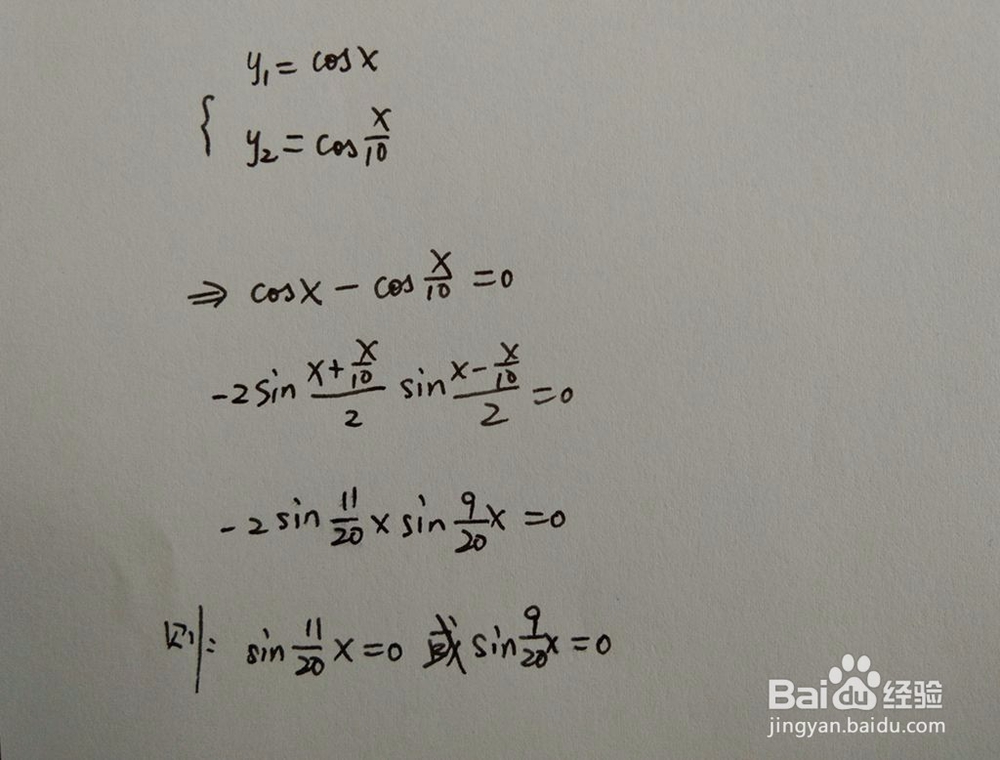 y₁ = cosx
{ y₂ = cos x/10
⇒ cosx − cos x/10 = 0
-2sin (x + x/10)/2 sin (x − x/10)/2 = 0
-2 sin 11/20 x sin 9/20 x = 0
则: sin 11/20 x = 0 或 sin 9/20 x = 0
Baidu经验
jingyan.baidu.com